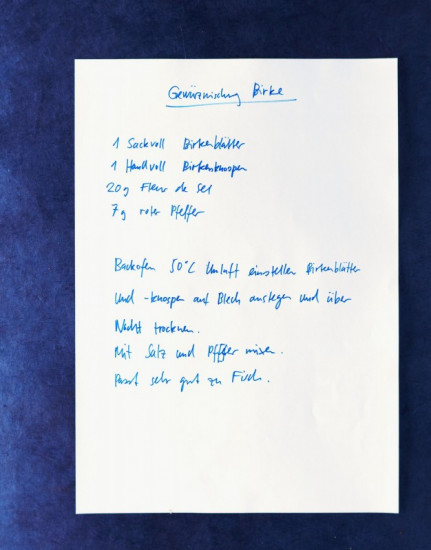 Gewürzmischung Birke
1 Sackvoll Birkenblätter
1 Handvoll Birkenknospen
20g Fleur de Sel
7g roter Pfeffer
Backofen 50°C Umluft einstellen Birkenblätter
und -knospen auf Blech auslegen und über
Nacht trocknen.
Mit Salz und Pfeffer mixen.
Passt sehr gut zu Fisch.